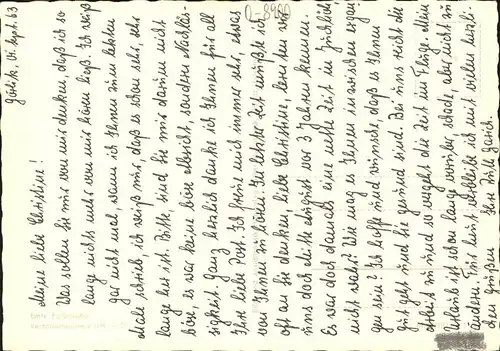 Görlitz, 14. Sept. 63
D-8900
Meine liebe Christine!
Was sollen Sie nur von mir denken, daß ich so
lange nichts mehr von mir hören ließ. Ich weiß
gar nicht mal, wann ich Ihnen zum letzten
Male schrieb, ich weiß nur, daß es schon sehr, sehr
lange her ist. Bitte, sind Sie mir darum nicht
böse, es war keine böse Absicht, sondern Nachläs-
sigkeit. Ganz herzlich danke ich Ihnen für all
Ihre liebe Post. Ich freue mich immer sehr, etwas
von Ihnen zu hören. In letzter Zeit mußte ich
oft an Sie denken, liebe Christine, lernten wir
uns doch dieses vor 3 Jahren kennen.
Es war doch damals eine nette Zeit in
nicht wahr? Wie mag es Ihnen inzwischen ergan-
gen sein? Ich hoffe und wünsche, daß es Ihnen
gut geht und Sie gesund sind. Bei uns reicht die
Arbeit zu und so vergeht die Zeit im Fluge. Mein
Urlaub ist schon lange vorüber, schade, aber nicht zu
ändern. Für heut verbleibe ich mit vielen herzli-
chen Grüßen Ihre Jutta